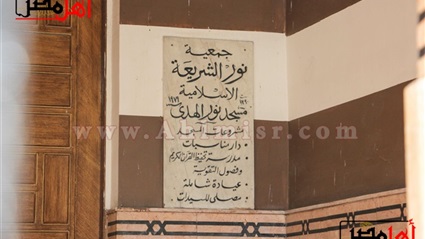 أهل مصر
جمعية
نور الشريعة
الإسلامية
مسجد نور الهدى
١٩٧٩
مشروعات المسجد
دار مناسبات
مدرسة تحفيظ القرآن الكريم
وفصول التقوية
عيادة شاملة
مصلى للسيدات
www.Ahlmisr.com
أهل مصر